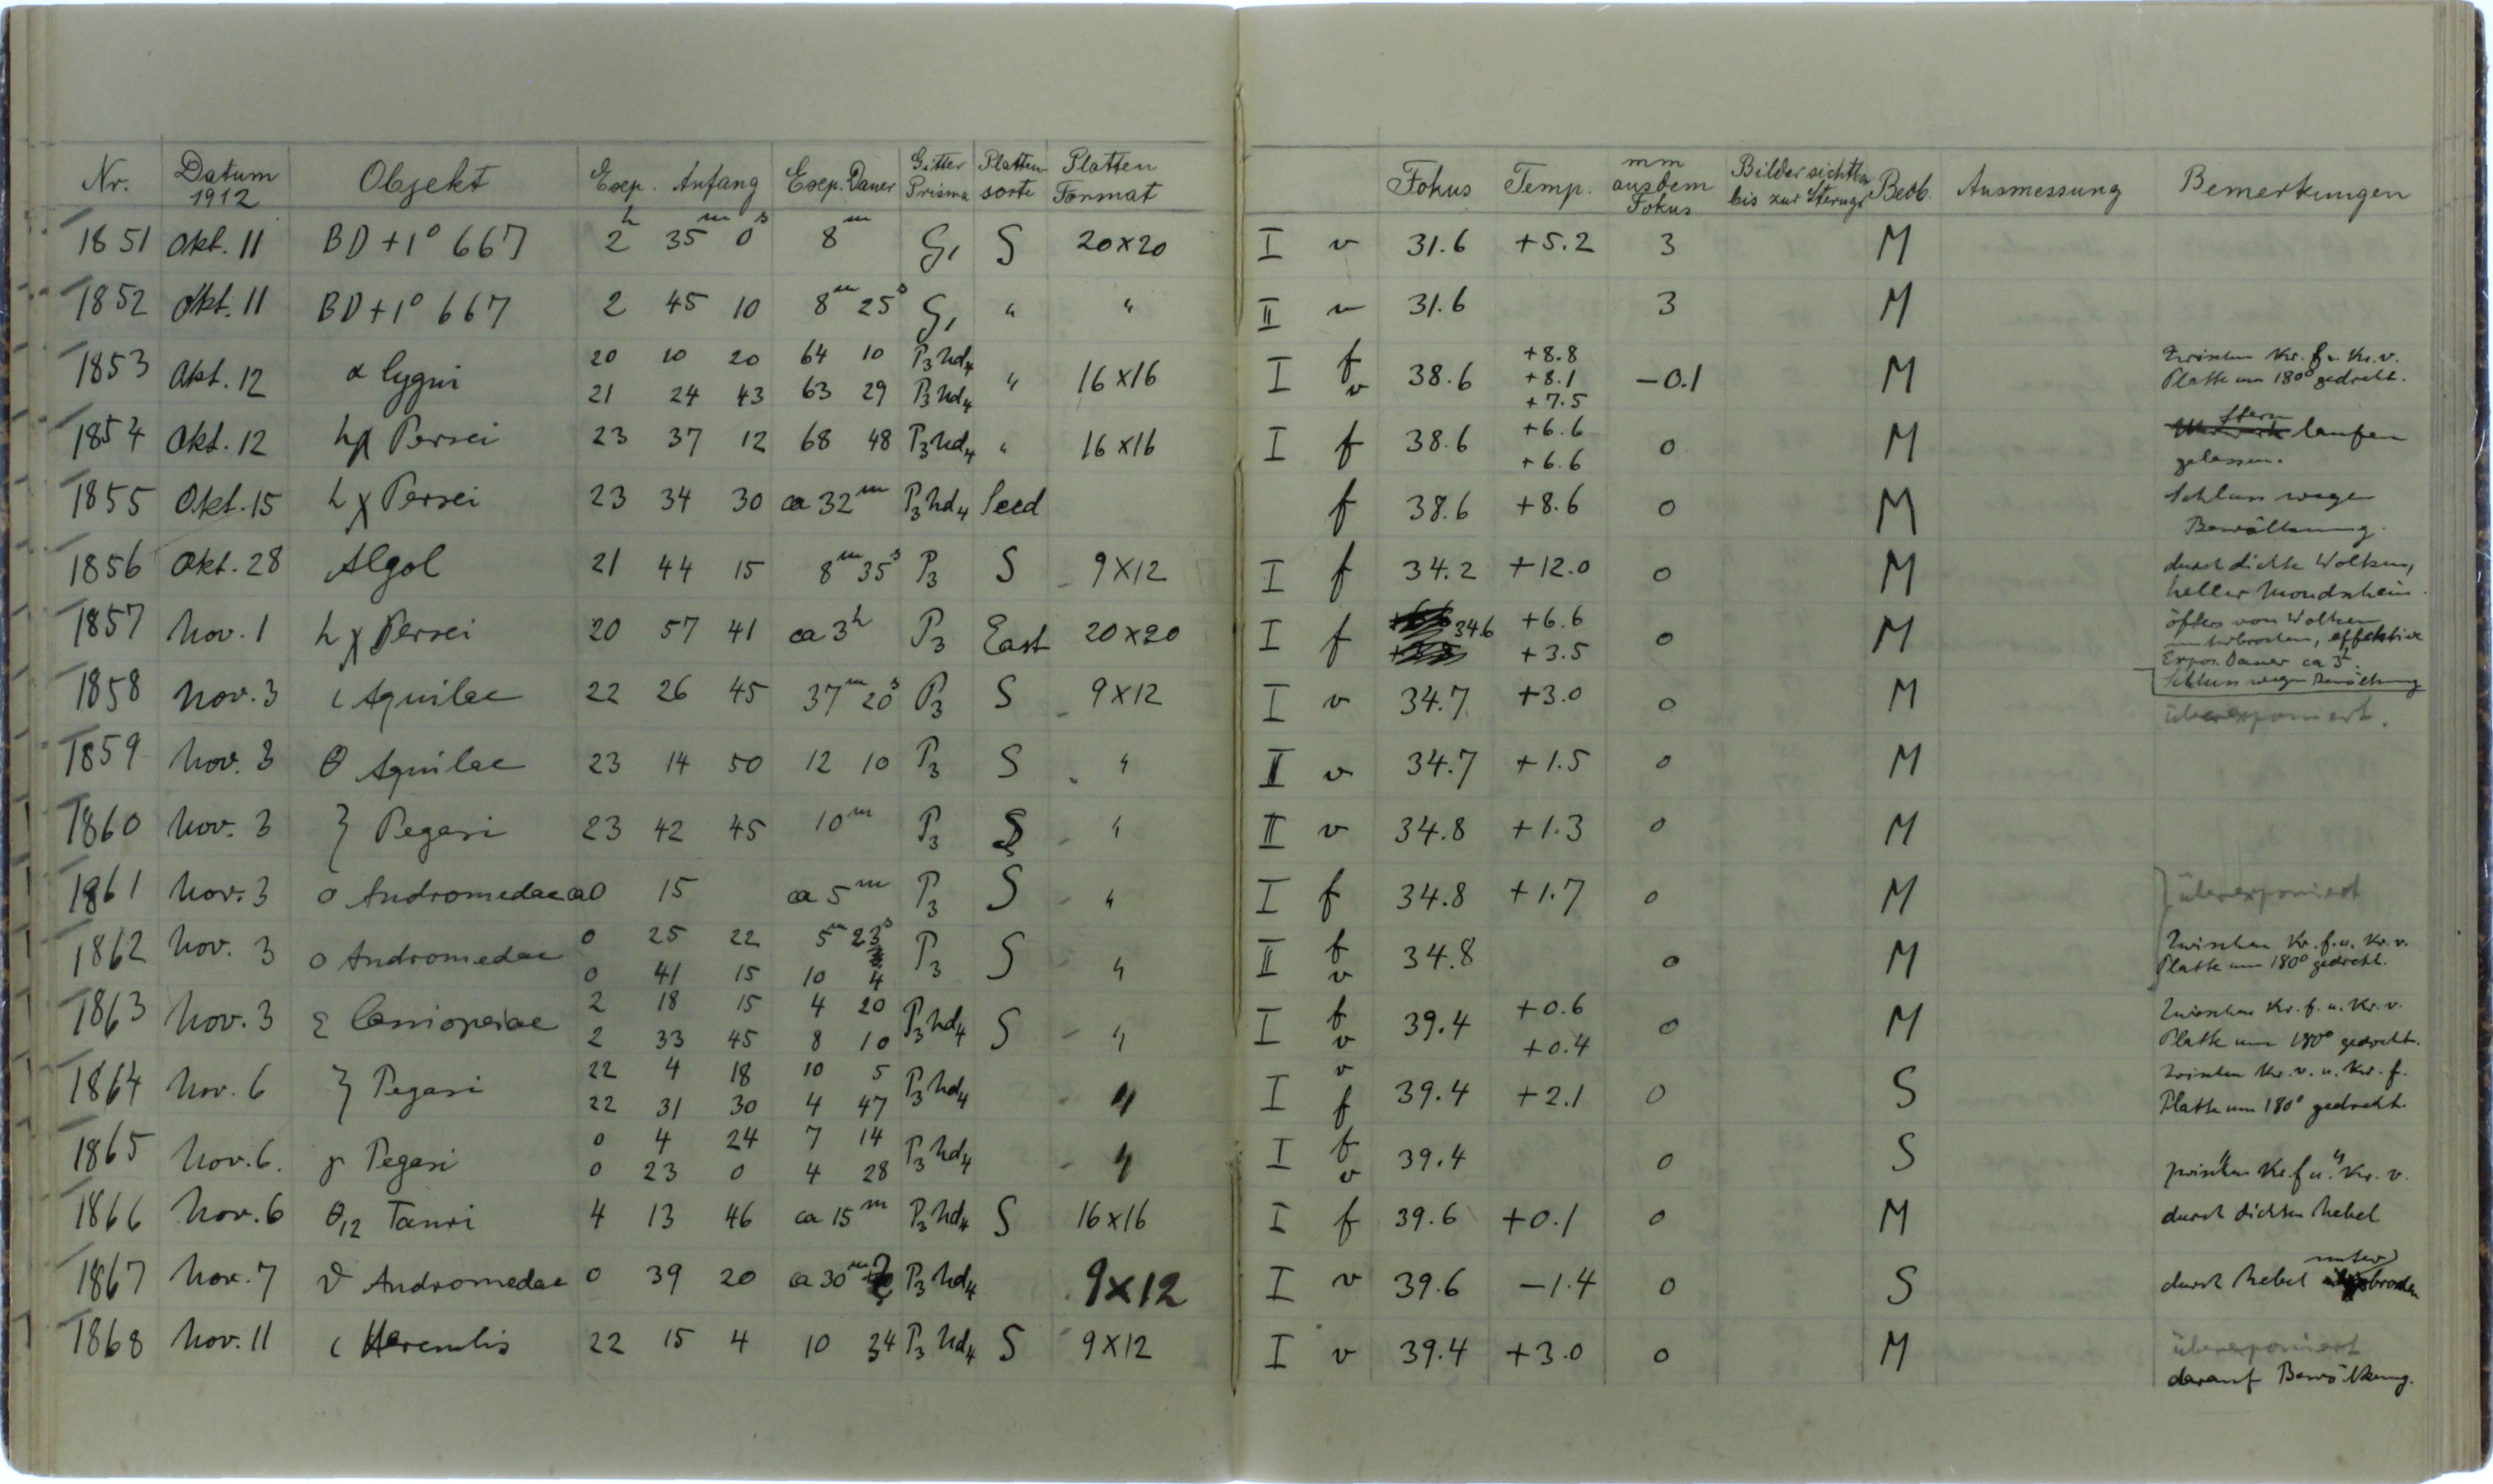 Nr. Datum 1912 Objekt Exp. Anfang Exp. Dauer Gitter Prisma Platten sorte Platten Format Fokus Temp. mm aus dem Fokus Bilder sichtbar bis zur Sterngr. Beob. Ausmessung Bemerkungen
1851 Okt. 11 BD +1° 667 2h 35m 0s 8m G1 S 20×20 I v 31.6 +5.2 3 M
1852 Okt. 11 BD +1° 667 2 45 10 8m 25s G1 " " II v 31.6 3 M
1853 Okt. 12 α Cygni 20 10 20 64 10 P3 hd4 " 16×16 I f 38.6 +8.8 −0.1 M Zwischen Kr. f u. Kr. v.
21 24 43 63 29 P3 hd4 v +8.1 Platte um 180° gedreht.
+7.5
1854 Okt. 12 h χ Persei 23 37 12 68 48 P3 hd4 " 16×16 I f 38.6 +6.6 0 M Stern laufen
+6.6 gelassen.
1855 Okt. 15 h χ Persei 23 34 30 ca 32m P3 hd4 Seed f 38.6 +8.6 0 M Schluss wegen
Bewölkung.
1856 Okt. 28 Algol 21 44 15 8m 35s P3 S 9×12 I f 34.2 +12.0 0 M durch dichte Wolken,
heller Mondschein.
1857 Nov. 1 h χ Persei 20 57 41 ca 3h P3 East 20×20 I f 34.6 +6.6 0 M öfters von Wolken
+3.5 unterbrochen, effektive
Expos. Dauer ca 3h.
Schluss wegen Bewölkung
1858 Nov. 3 ι Aquilae 22 26 45 37m 20s P3 S 9×12 I v 34.7 +3.0 0 M überexponiert.
1859 Nov. 3 θ Aquilae 23 14 50 12 10 P3 S " II v 34.7 +1.5 0 M
1860 Nov. 3 ζ Pegasi 23 42 45 10m P3 S " II v 34.8 +1.3 0 M
1861 Nov. 3 ο Andromedae ca 0 15 ca 5m P3 S " I f 34.8 +1.7 0 M überexponiert
1862 Nov. 3 ο Andromedae 0 25 22 5m 23s P3 S " II f 34.8 0 M Zwischen Kr. f. u. Kr. v.
0 41 15 10 4 v Platte um 180° gedreht.
1863 Nov. 3 ε Cassiopeiae 2 18 15 4 20 P3 hd4 S " I f 39.4 +0.6 0 M Zwischen Kr. f. u. Kr. v.
2 33 45 8 10 v +0.4 Platte um 180° gedreht.
1864 Nov. 6 ζ Pegasi 22 4 18 10 5 P3 hd4 " I v 39.4 +2.1 0 S Zwischen Kr. v. u. Kr. f.
22 31 30 4 47 f Platte um 180° gedreht.
1865 Nov. 6. γ Pegasi 0 4 24 7 14 P3 hd4 " I f 39.4 0 S " "
0 23 0 4 28 v zwischen Kr. f u. Kr. v.
1866 Nov. 6 θ12 Tauri 4 13 46 ca 15m P3 hd4 S 16×16 I f 39.6 +0.1 0 M durch dichten Nebel
1867 Nov. 7 ϑ Andromedae 0 39 20 ca 30m P3 hd4 9×12 I v 39.6 −1.4 0 S durch Nebel unterbrochen
1868 Nov. 11 ι Herculis 22 15 4 10 34 P3 hd4 S 9×12 I v 39.4 +3.0 0 M überexponiert
darauf Bewölkung.